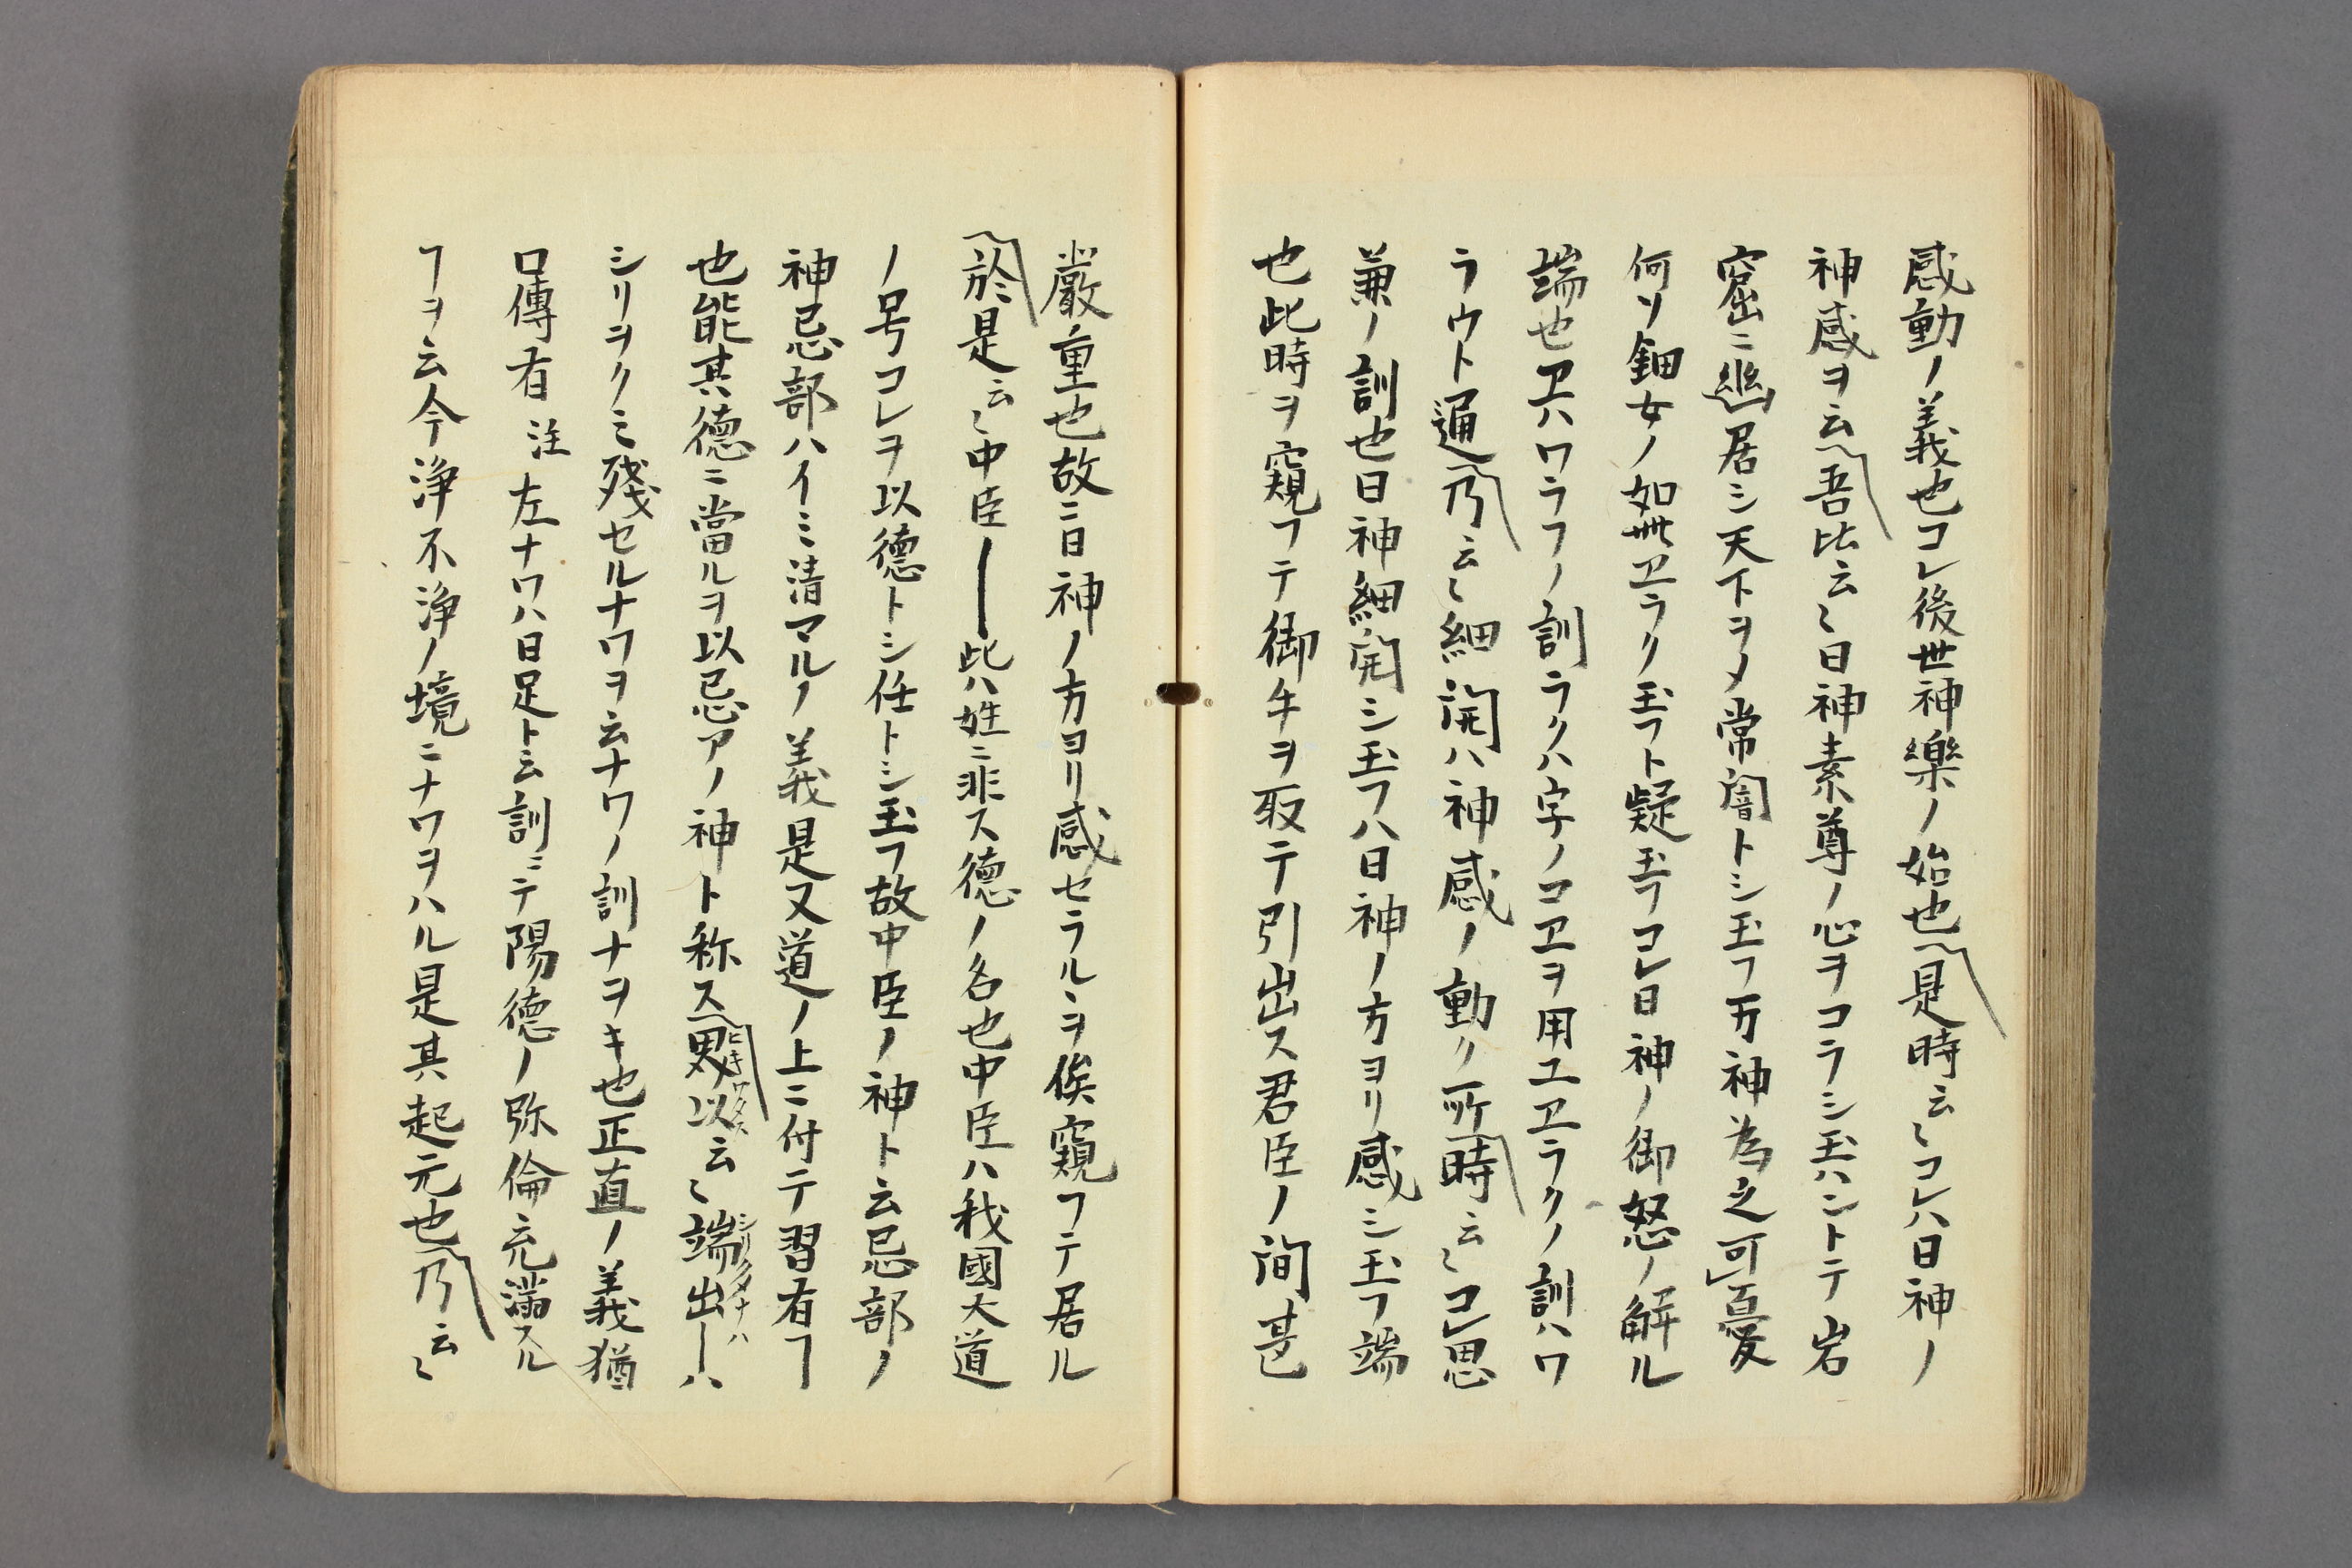 感動ノ義也コレ後世神樂ノ始也是時云〻コレハ日神ノ
神感ヲ云吾比云〻日神素尊ノ心ヲコラシ玉ハントテ岩
窟ニ幽居シ天下ヲメ常闇トシ玉フ万神為之可憂
何ソ鈿女ノ如此ヱラク玉フト疑玉フコレ日神ノ御怒ノ解ル
端也ヱハワラフノ訓ラクハ字ノコヱヲ用ユヱラクノ訓ハワ
ラウト通乃云〻細開ハ神感ノ動ク所時云〻コレ思
兼ノ訓也日神細開シ玉フハ日神ノ方ヨリ感シ玉フ端
也此時ヲ窺フテ御手ヲ取テ引出ス君臣ノ間甚
嚴重也故ニ日神ノ方ヨリ感セラルヽヲ俟窺フテ居ル
於是云〻中臣ー此ハ姓ニ非ス德ノ名也中臣ハ我國大道
ノ号コレヲ以德トシ任トシ玉フ故中臣ノ神ト云忌部ノ
神忌部ハイミ清マルノ義是又道ノ上ニ付テ習有ヿ
也能其德ニ當ルヲ以忌アノ神ト称ス界以云〻端出ーハ
シリヲクミ殘セルナワヲ云ナワノ訓ナヲキ也正直ノ義猶
口傳有 注 左ナワハ日足ト云訓ニテ陽德ノ弥倫充滿スル
ヿヲ云今浄不浄ノ境ニナワヲハル是其起元也乃云〻